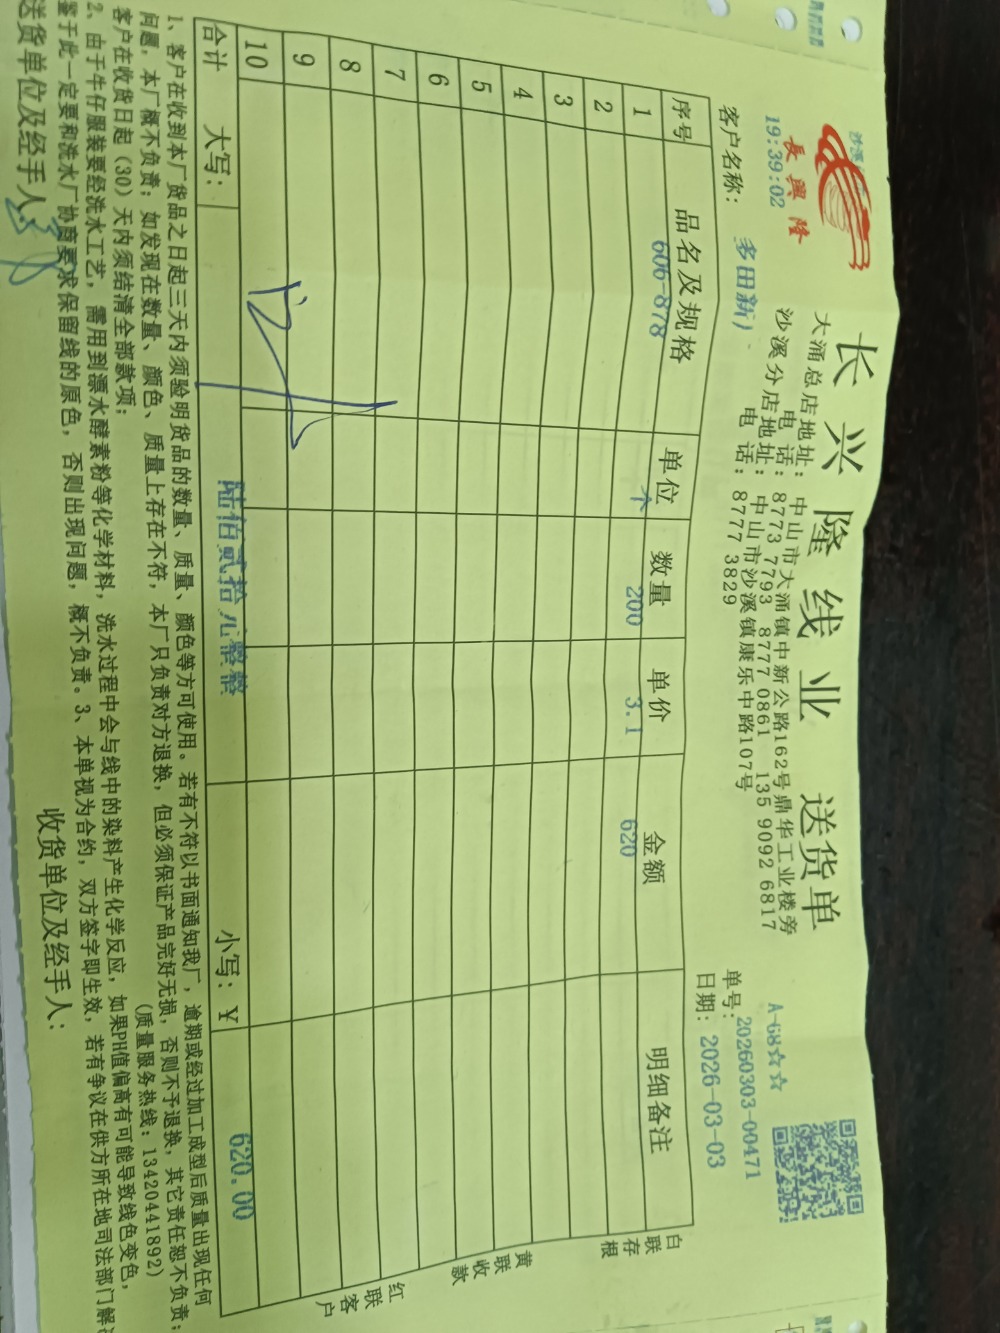 長興隆
19:39:02
长兴隆线业 送货单
大涌总店地址: 中山市大涌镇中新公路162号鼎华工业楼旁
电话: 8773 7793 8777 0861 135 9092 6817
沙溪分店地址: 中山市沙溪镇康乐中路107号
电话: 8777 3829
A-68☆☆
单号: 20260303-00471
客户名称: 多田新)
日期: 2026-03-03
序号 品名及规格 单位 数量 单价 金额 明细备注
1 606-878 个 200 3.1 620
2
3
4
5
6
7
8
9
10
合计 大写: 陆佰贰拾元整 小写: ¥ 620.00
白联存根
黄联收款
红联客户
1、客户在收到本厂货品之日起三天内须验明货品的数量、质量、颜色等方可使用。若有不符以书面通知我厂, 逾期或经过加工成型后质量出现任何
问题, 本厂概不负责; 如发现在数量、颜色、质量上存在不符, 本厂只负责对方退换, 但必须保证产品完好无损, 否则不予退换, 其它责任恕不负责;
客户在收货日起 (30) 天内须结清全部款项;
(质量服务热线: 13420441892)
2、由于牛仔服装要经洗水工艺, 需用到漂水酵素粉等化学材料, 洗水过程中会与线中的染料产生化学反应, 如果PH值偏高有可能导致线色变色,
鉴于此一定要和洗水厂协商要求保留线的原色, 否则出现问题, 概不负责。3、本单视为合约, 双方签字即生效, 若有争议在供方所在地司法部门解
送货单位及经手人:
收货单位及经手人: